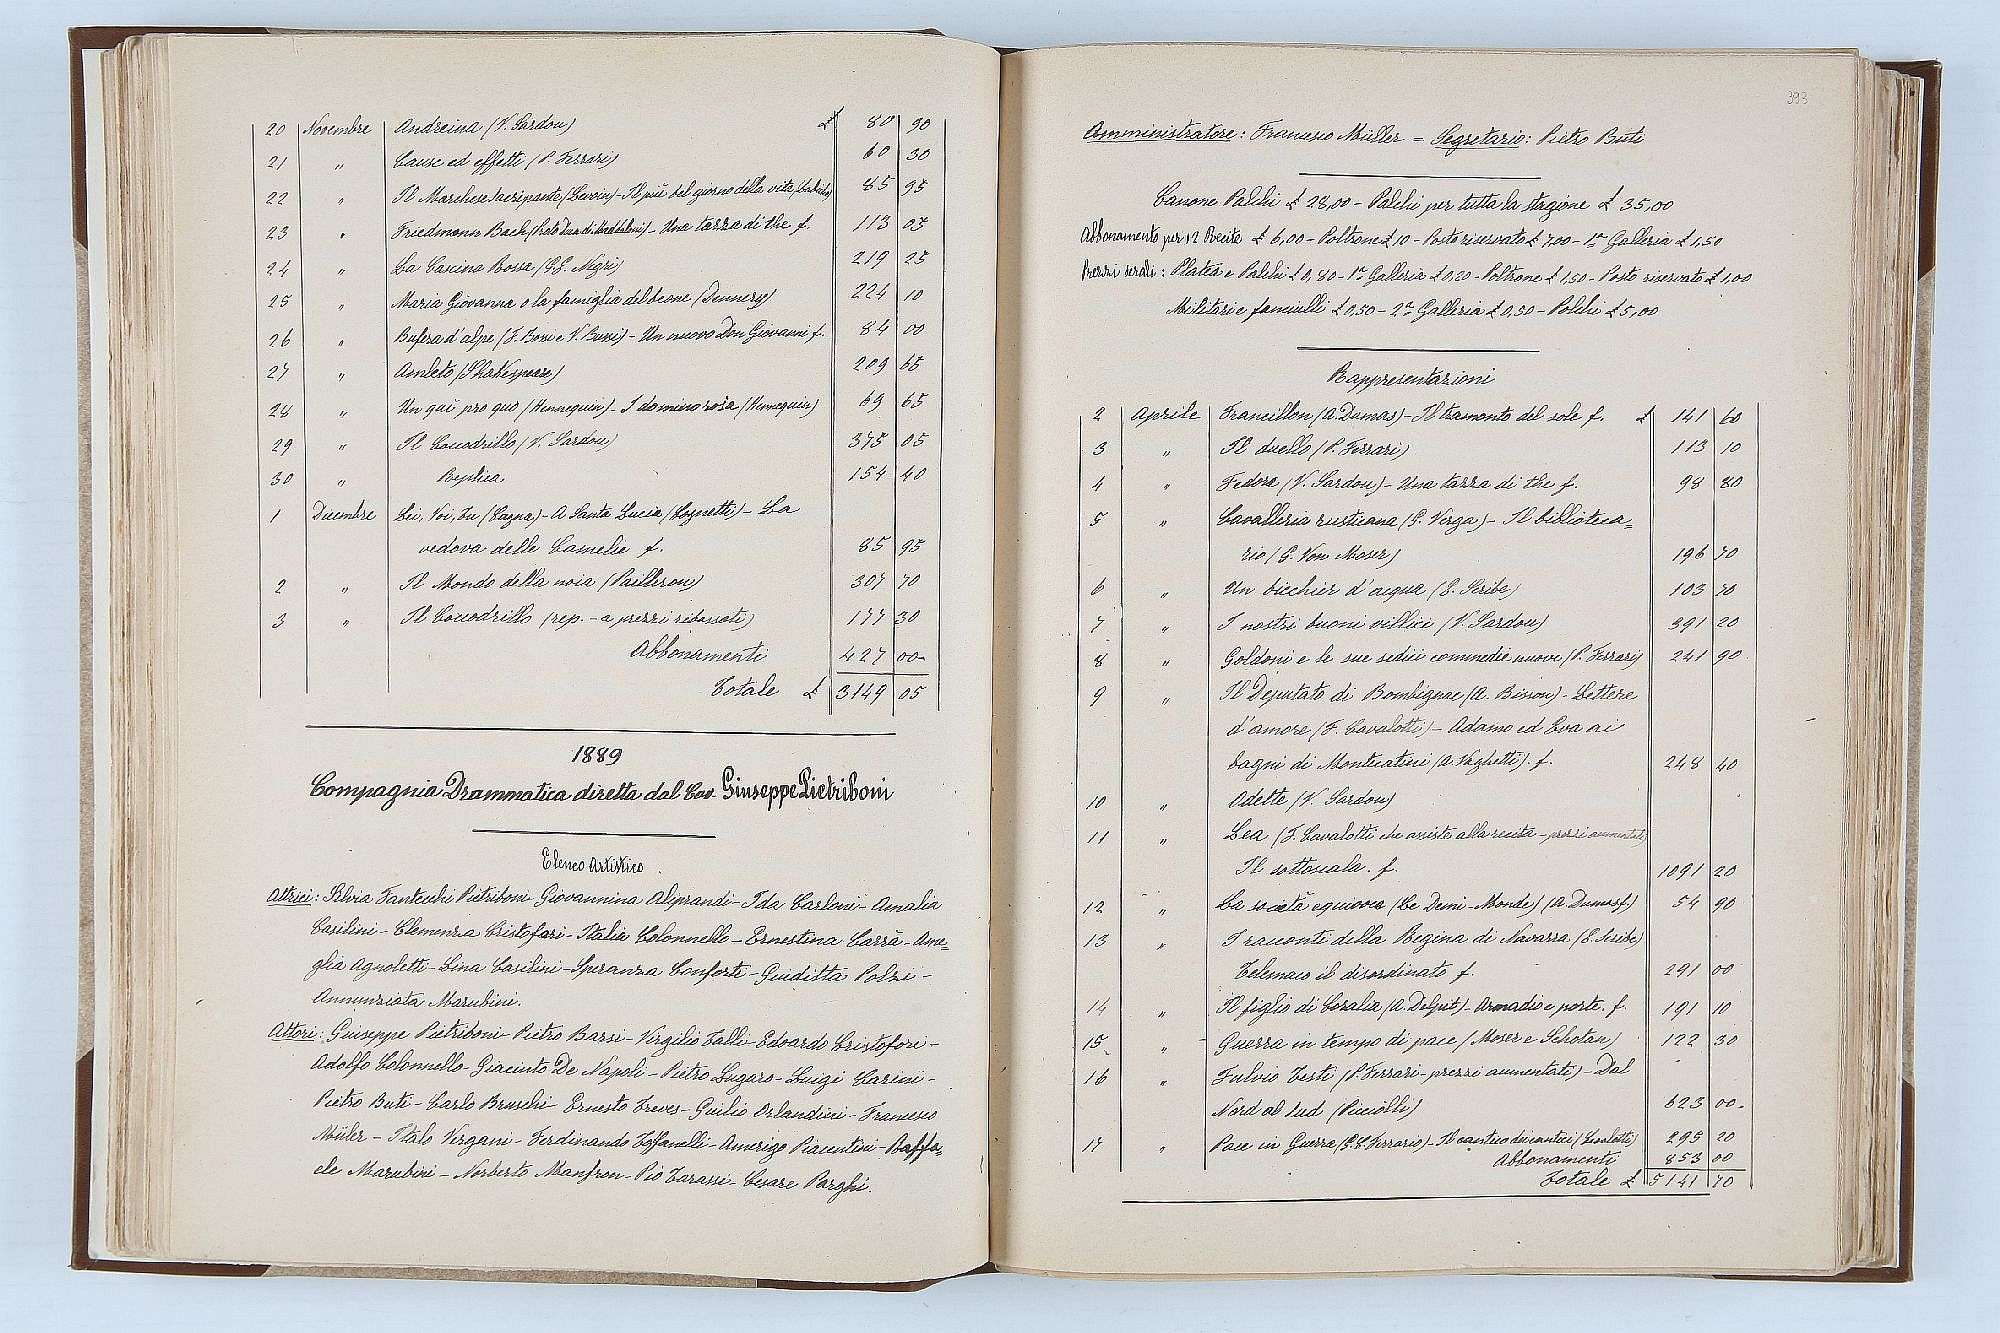 20 Novembre Andreina (V. Sardou) £ 80 90
21 " Cause ed effetti (P. Ferrari) 60 30
22 " Il Marchese Sacripante (Gevoin) - Il più bel giorno della vita 85 95
23 " Friedmann Bach - Una tazza di the f. 113 05
24 " La Cascina Rossa (G.G. Negri) 219 25
25 " Maria Giovanna o la famiglia del beone (Dennery) 224 10
26 " Bufera d'alpe (F. Bossi e V. Bussi) - Un nuovo Don Giovanni f. 84 00
27 " Amleto (Shakespeare) 209 65
28 " Un qui pro quo (Hennequin) - I domino rosa (Hennequin) 69 65
29 " Il Coccodrillo (V. Sardou) 375 05
30 " Replica 154 40
1 Dicembre Lei, Voi, Tu (Cagna) - A Santa Lucia (Cognetti) - La
vedova delle Camelie f. 85 95
2 " Il Mondo della noia (Pailleron) 307 70
3 " Il Coccodrillo (rep. - a prezzi ribassati) 177 30
Abbonamenti 427 00
Totale £ 3149 05
1889
Compagnia Drammatica diretta dal Cav. Giuseppe Pietriboni
Elenco Artistico.
Attrici: Silvia Fantecchi Pietriboni - Giovannina Aliprandi - Ida Carloni - Amalia
Casilini - Clemenza Cristofari - Italia Colonnello - Ernestina Carrà - Ame=
glia Agnoletti - Lina Casilini - Speranza Conforti - Giuditta Polzi -
Annunziata Marubini.
Attori: Giuseppe Pietriboni - Pietro Barsi - Virgilio Talli - Edoardo Cristofari -
Adolfo Colonnello - Giacinto De Napoli - Pietro Lugaro - Luigi Carini -
Pietro Buti - Carlo Bruschi - Ernesto Treves - Guilio Orlandini - Francesco
Müler - Italo Vergani - Ferdinando Toffanelli - Amerigo Piacentini - Raffa=
ele Marubini - Norberto Manfron - Pio Tarassi - Cesare Parghi.
393
Amministratore: Francesco Müller = Segretario: Pietro Buti
Canone Palchi £ 28,00 - Palchi per tutta la stagione £ 35,00
Abbonamento per 12 Recite £ 6,00 - Poltrone £ 10 - Posto riservato £ 7,00 - 1ª Galleria £ 1,50
Prezzi serali: Platea e Palchi £ 0,80 - 1ª Galleria £ 0,20 - Poltrone £ 1,50 - Posto riservato £ 1,00
Militari e fanciulli £ 0,50 - 2ª Galleria £ 0,30 - Palchi £ 5,00
Rappresentazioni
2 Aprile Francillon (A. Dumas) - Il tramonto del sole f. £ 141 60
3 " Il duello (P. Ferrari) 113 10
4 " Fedora (V. Sardou) - Una tazza di the f. 98 80
5 " Cavalleria rusticana (G. Verga) - Il biblioteca=
rio (G. Von Moser) 196 70
6 " Un bicchier d'acqua (E. Scribe) 103 70
7 " I nostri buoni villici (V. Sardou) 391 20
8 " Goldoni e le sue sedici commedie nuove (P. Ferrari) 241 90
9 " Il Deputato di Bombignac (A. Bisson) - Lettere
d'amore (F. Cavalotti) - Adamo ed Eva ai
bagni di Monticatini (A. Vaghetti). f. 248 40
10 " Odette (V. Sardou)
11 " Lea (F. Cavalotti che assiste alla recita - prezzi aumentati)
Il sottoscala. f. 1091 20
12 " La società equivoca (Le Demi-Monde) (A. Dumas f.) 54 90
13 " I racconti della Regina di Navarra (E. Scribe)
Telemaco il disordinato f. 291 00
14 " Il figlio di Coralia (A. Delpit) - Armadio e porte. f. 191 10
15 " Guerra in tempo di pace (Moser e Schotan) 122 30
16 " Fulvio Testi (P. Ferrari - prezzi aumentati) - Dal
Nord al Sud (Picciolli) 623 00
17 " Pace in Guerra (E.E. Ferrario) - Il cantico dei cantici (Cavalotti) 295 20
Abbonamenti 853 00
Totale £ 5141 70